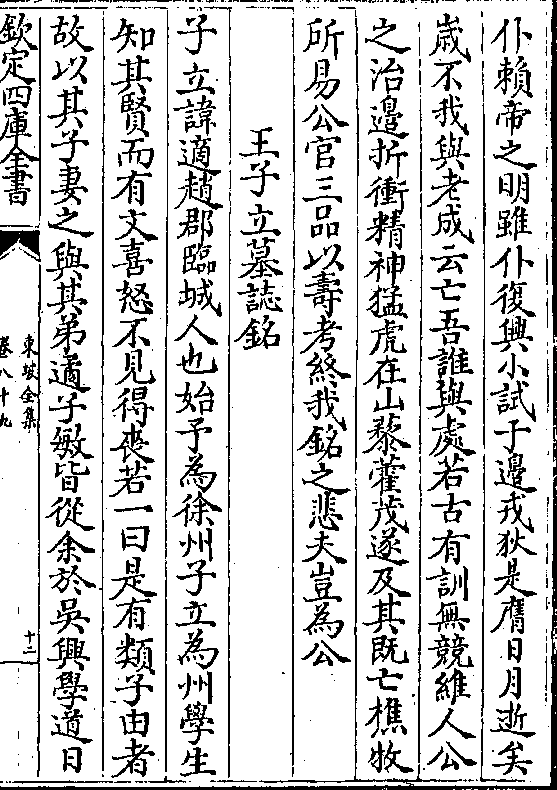 仆賴帝之明雖仆復興小試于邊戎狄是膺日月逝矣
歲不我與老成云亡吾誰與處若古有訓無競維人公
之治邊折衝精神猛虎在山藜藿茂遂及其既亡樵牧
所易公官三品以壽考終我銘之悲夫豈為公
王子立墓誌銘
子立諱適趙郡臨城人也始予為徐州子立為州學生
知其賢而有文喜怒不見得喪若一曰是有類子由者
故以其子妻之與其弟遹子敏皆從余於吳興學道日
欽定四庫全書
東坡全集
卷八十九
十二